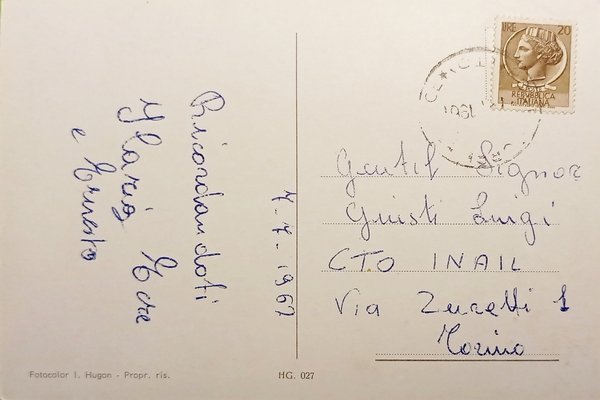 Ricordandoti
Ilario Ezre
e Ernesto
7-7-1967
LIRE 20
REPUBBLICA
ITALIANA
Gentil Signor
Giusti Luigi
CTO INAIL
Via Zuretti 1
Torino
Fotocolor I. Hugon - Propr. ris.
HG. 027